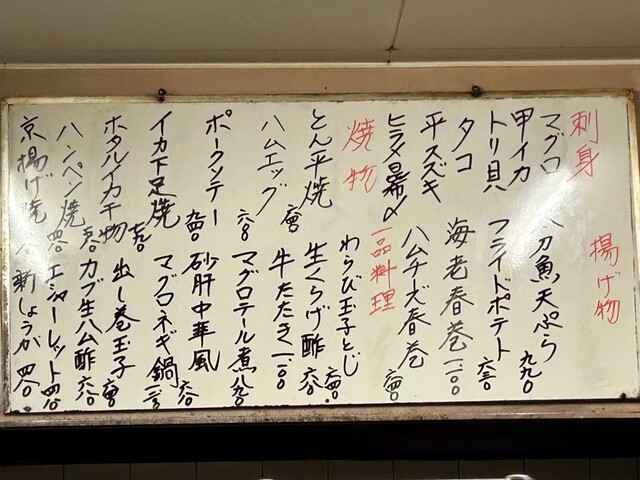 刺身
マグロ
甲イカ
トリ貝
タコ
平スズキ
ヒラメ昆布〆
焼物
とん平焼
ハムエッグ
ポークソテー
イカ下足焼
ホタルイカ干物
ハンペン焼
京揚げ焼
揚げ物
太刀魚天ぷら 九九〇
フライドポテト 六三〇
海老春巻 一一〇〇
ハムチーズ春巻
一品料理
わらび玉子とじ
生くらげ酢 六八〇
牛たたき 一一〇〇
マグロテール煮 八九〇
砂肝中華風
マグロネギ鍋
出し巻玉子
カブ生ハム酢 六八〇
エシャーレット
新しょうが